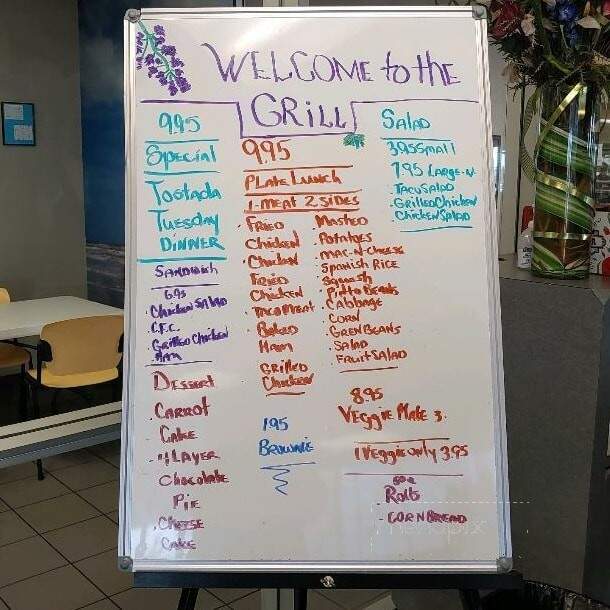 WELCOME to the
GRILL
9.95
Special
Tostada
Tuesday
DINNER
SANDWISH
6.95
· Chicken SALAD
· C.F.C.
· Grilled Chicken
· HAM
DESSERT
· CARROT
· CAKE
· 4 LAYER
Chocolate
PIE
· CHEESE
CAKE
9.95
PLATE LUNCH
1-MEAT 2 SIDES
· FRIED
Chicken
· Chicken
FRIED
Chicken
· TACO MEAT
· BAKED
HAM
GRILLED
Chicken
· MASHED
· POTATOES
· MAC-N-CHEESE
· SPANISH RICE
· Squash
· PINTO BEANS
· CABBAGE
· CORN
· GREN BEANS
· SALAD
· FRUIT SALAD
1.95
BROWNIE
SALAD
3.95 SMALL
7.95 LARGE
· TACO SALAD
· GRILLED Chicken
· Chicken SALAD
8.95
VEGGIE PLATE 3.
1 VEGGIE ONLY 3.95
Rolls
· CORN BREAD